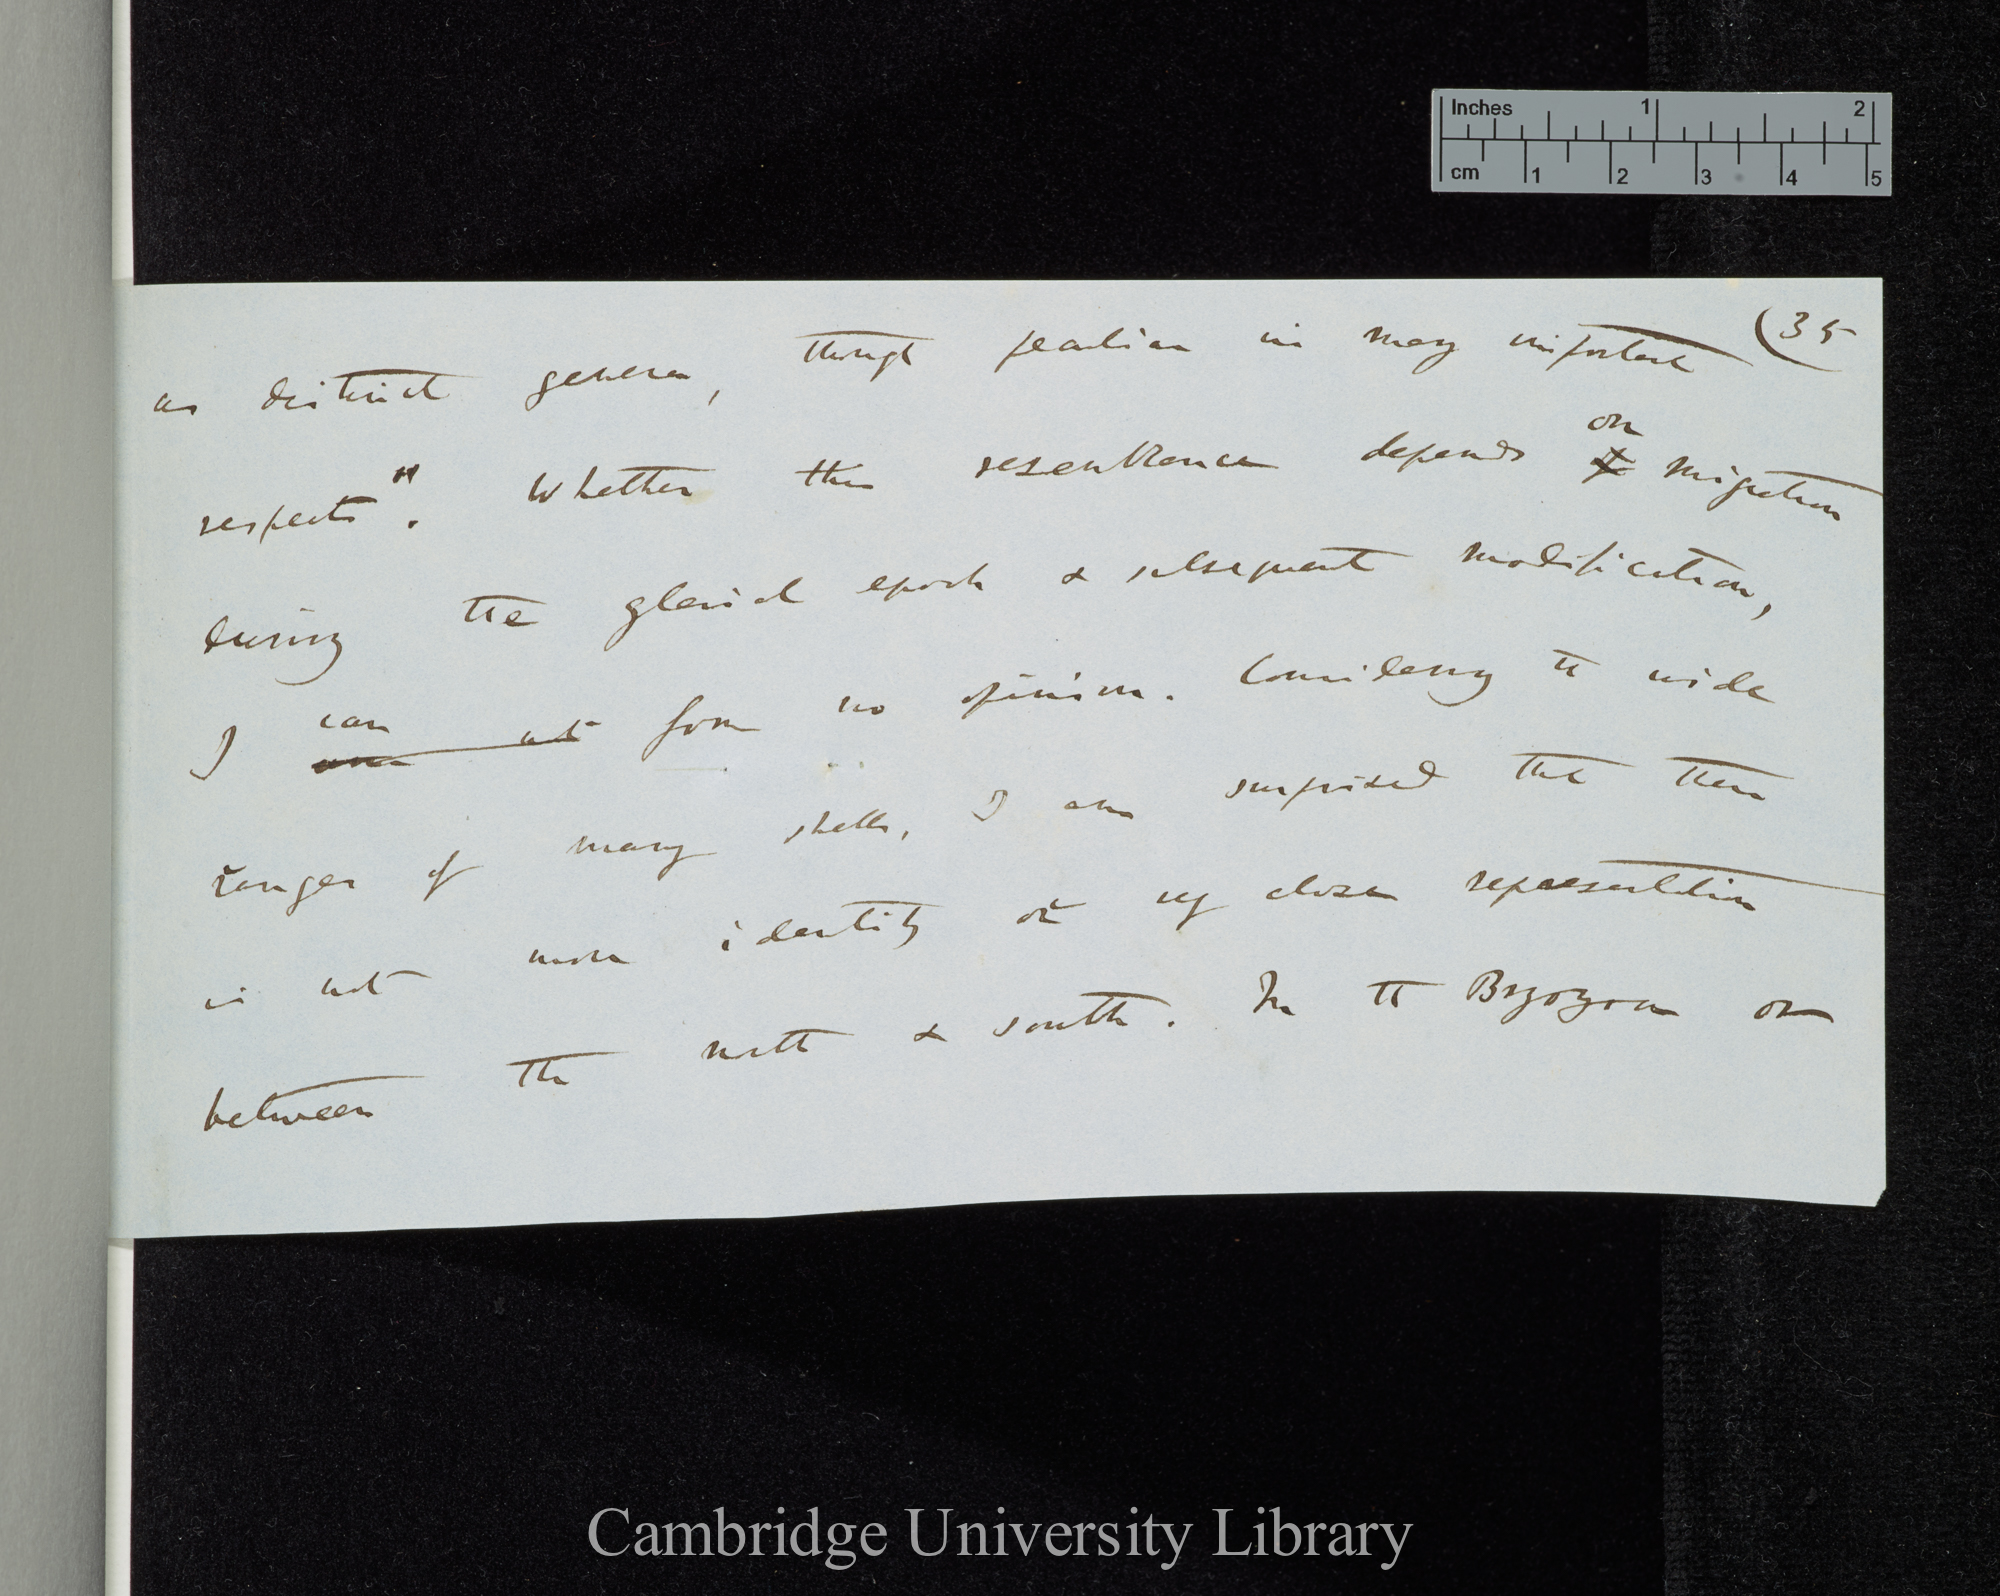 Inches 1 2
cm 1 2 3 4 5
(35
as distinct genera, though peculiar in many important
respects". Whether this resemblance depends on migration
during the glacial epoch & subsequent modification,
I can not form no opinion. Considering the wide
ranges of many shells, I am surprised that there
is not more identity or very close representation
between the north & south. In the Bryozoa or
Cambridge University Library